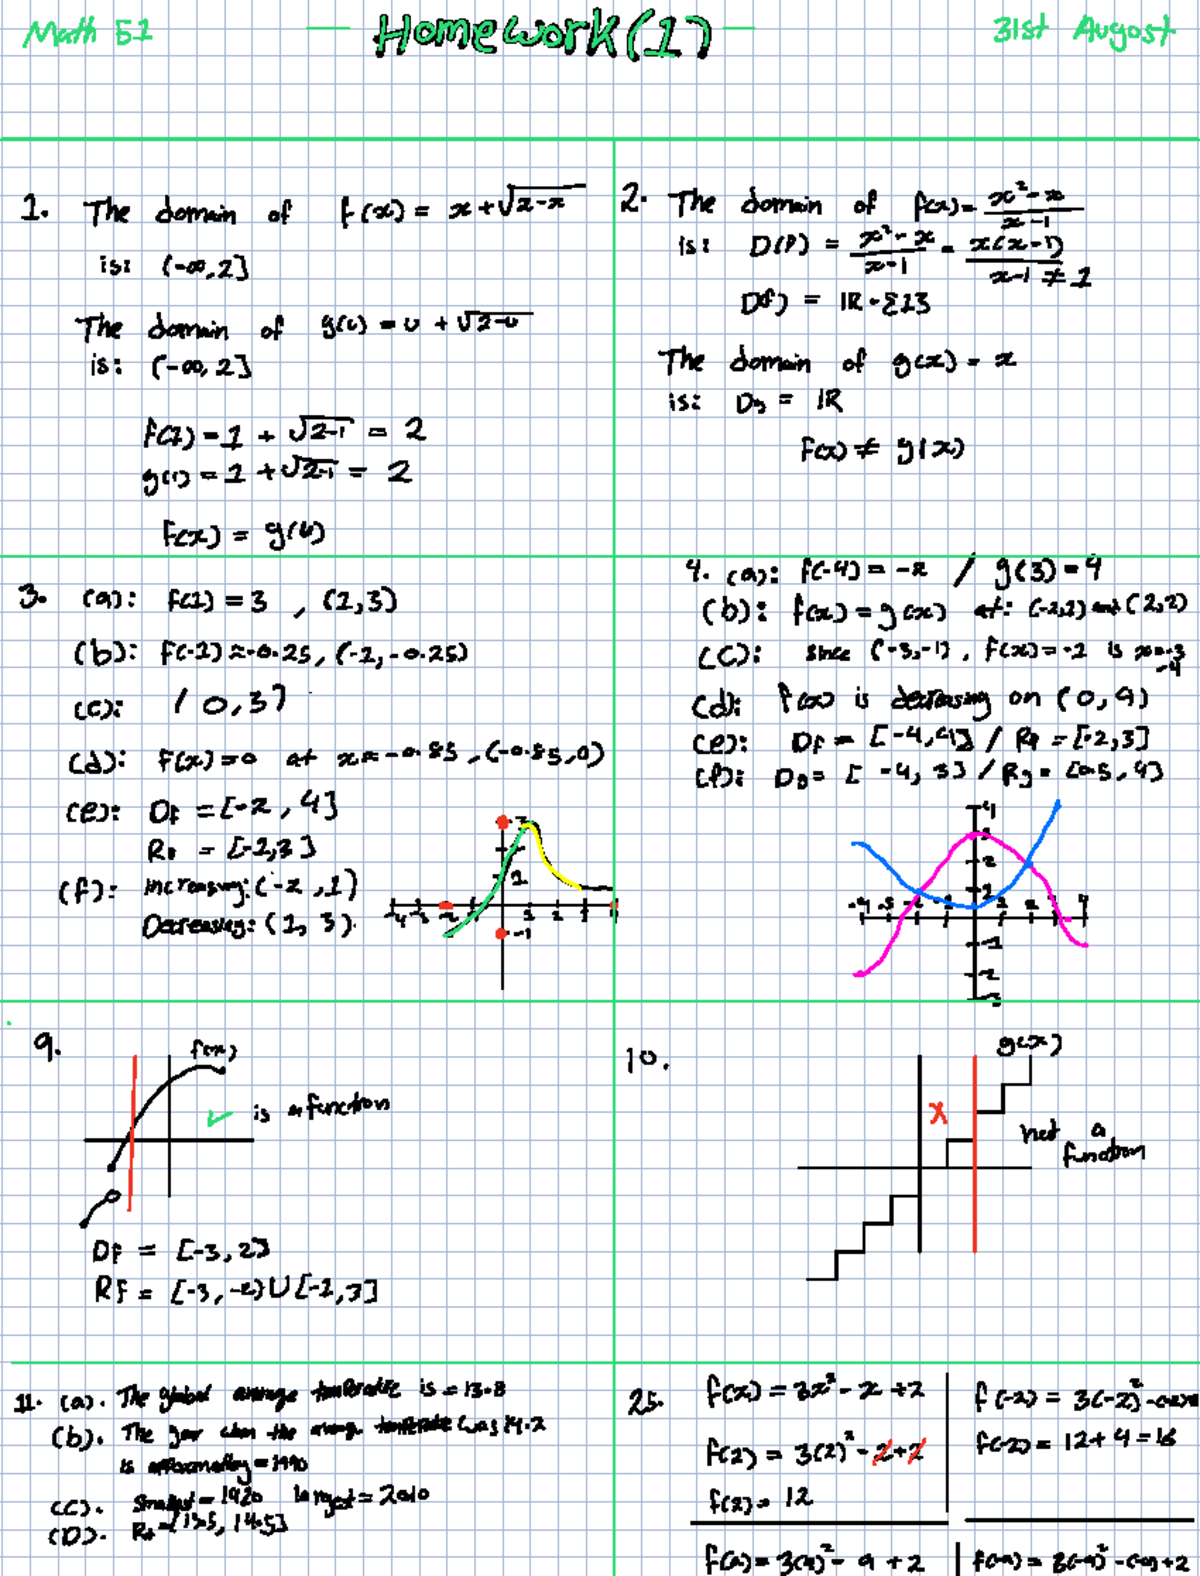 Math 51
Homework(1)
31st August
1. The domain of f(x) = x+√2-x
is: (-∞,2]
The domain of g(u) = u + √2-u
is: (-∞,2]
f(1) = 1 + √2-1 = 2
g(1) = 1 + √2-1 = 2
f(x) = g(u)
2. The domain of f(x) = x²-x / x-1
is: D(f) = x²-x / x-1 = x(x-1) / x-1 ≠ 1
D(f) = IR - {1}
The domain of g(x) = x
is: Dg = IR
f(x) ≠ g(x)
3. (a): f(1) = 3 , (1,3)
(b): f(-1) ≈ -0.25, (-2,-0.25)
(c): (0,3)
(d): f(x)=0 at x≈-0.85, (-0.85,0)
(e): Df = [-2, 4]
Rf = [-2,3]
(f): increasing: (-2,1)
Decreasing: (1, 3).
4. (a): f(-4) = -2 / g(3) = 4
(b): f(x) = g(x) at: (-2,2) and (2,2)
(c): since (-3,-1), f(x) = -2 is x=-3
-4
(d): f(x) is decreasing on (0,4)
(e): Df = [-4,4] / Rf = [-2,3]
(f): Dg = [-4, 3] / Rg = [0.5, 4]
9.
f(x)
is a function
Df = [-3,2]
Rf = [-3,-2) U [-1,3]
10.
g(x)
X
not a
function
11. (a). The global average temperature is = 13.8
(b). The year when the average temperature was 14.2
is approximatley = 1990
(C). Smallest = 1920 largest = 2010
(D). Rf = [13.5, 14.5]
25. f(x) = 3x² - x + 2
f(2) = 3(2)² - 2 + 2
f(2) = 12
f(-2) = 3(-2)² - (-2)+
f(-2) = 12 + 4 = 16
f(a) = 3(a)² - a + 2
f(-a) = 3(-a)² - (-a) + 2